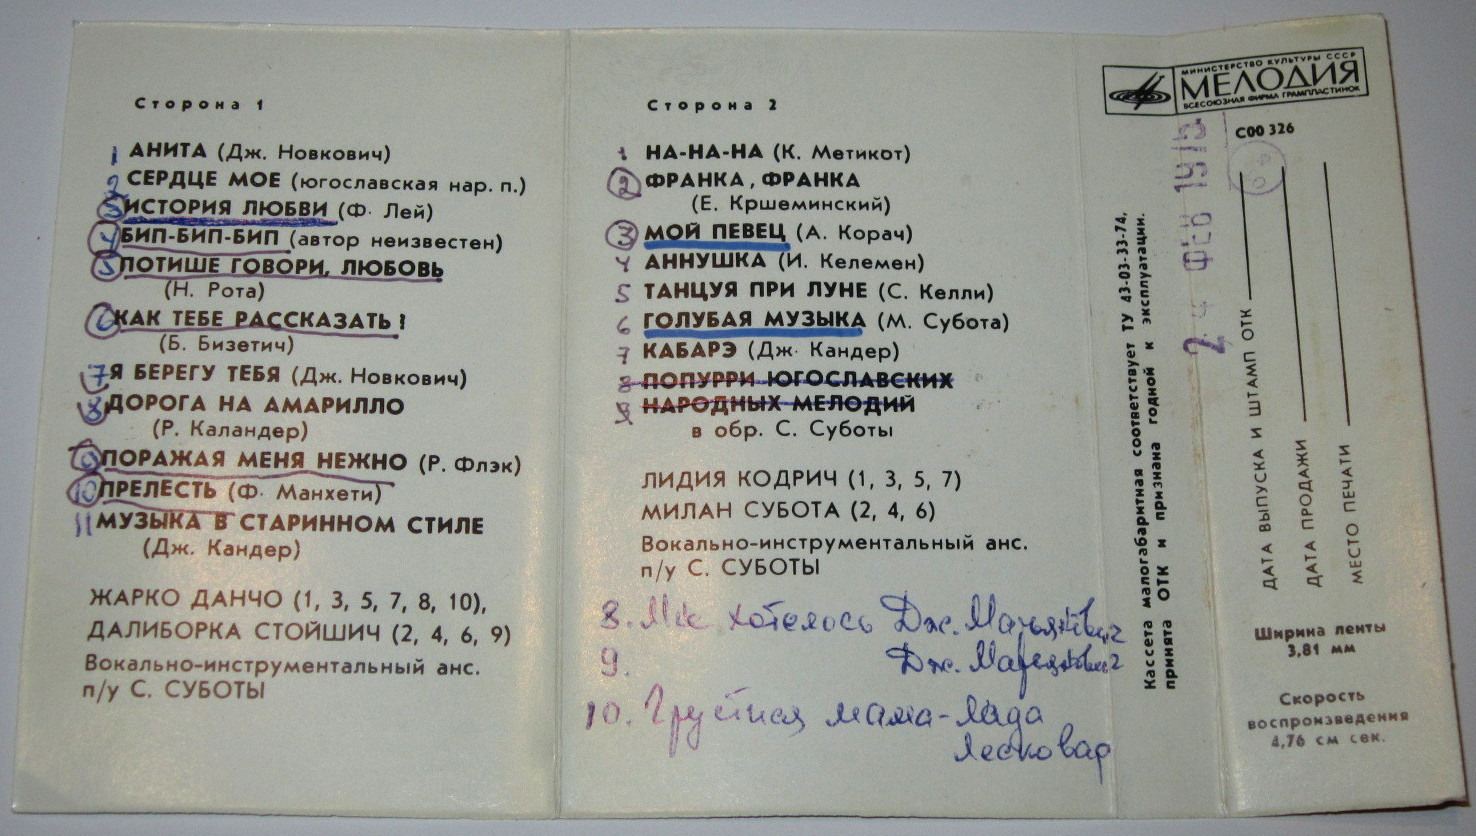 Сторона 1
1 АНИТА (Дж. Новкович)
2 СЕРДЦЕ МОЕ (югославская нар. п.)
3 ИСТОРИЯ ЛЮБВИ (Ф. Лей)
4 БИП-БИП-БИП (автор неизвестен)
5 ПОТИШЕ ГОВОРИ, ЛЮБОВЬ
(Н. Рота)
6 КАК ТЕБЕ РАССКАЗАТЬ!
(Б. Бизетич)
7 Я БЕРЕГУ ТЕБЯ (Дж. Новкович)
8 ДОРОГА НА АМАРИЛЛО
(Р. Каландер)
9 ПОРАЖАЯ МЕНЯ НЕЖНО (Р. Флэк)
10 ПРЕЛЕСТЬ (Ф. Манхети)
11 МУЗЫКА В СТАРИННОМ СТИЛЕ
(Дж. Кандер)
ЖАРКО ДАНЧО (1, 3, 5, 7, 8, 10),
ДАЛИБОРКА СТОЙШИЧ (2, 4, 6, 9)
Вокально-инструментальный анс.
п/у С. СУБОТЫ
Сторона 2
1 НА-НА-НА (К. Метикот)
2 ФРАНКА, ФРАНКА
(Е. Кршеминский)
3 МОЙ ПЕВЕЦ (А. Корач)
4 АННУШКА (И. Келемен)
5 ТАНЦУЯ ПРИ ЛУНЕ (С. Келли)
6 ГОЛУБАЯ МУЗЫКА (М. Субота)
7 КАБАРЭ (Дж. Кандер)
8 ПОПУРРИ ЮГОСЛАВСКИХ
9 НАРОДНЫХ МЕЛОДИЙ
в обр. С. Суботы
ЛИДИЯ КОДРИЧ (1, 3, 5, 7)
МИЛАН СУБОТА (2, 4, 6)
Вокально-инструментальный анс.
п/у С. СУБОТЫ
8. Мне хотелось Дж. Марьянович
9. Дж. Марьянович
10. Грустная мама - Лада
Лесковар
Кассета малогабаритная соответствует ТУ 43-03-33-74,
принята ОТК и признана годной к эксплуатации.
24 ФЕВ 197
МИНИСТЕРСТВО КУЛЬТУРЫ СССР
МЕЛОДИЯ
ВСЕСОЮЗНАЯ ФИРМА ГРАМПЛАСТИНОК
С00 326
ДАТА ВЫПУСКА И ШТАМП ОТК
ДАТА ПРОДАЖИ
МЕСТО ПЕЧАТИ
Ширина ленты
3,81 мм
Скорость
воспроизведения
4,76 см сек.